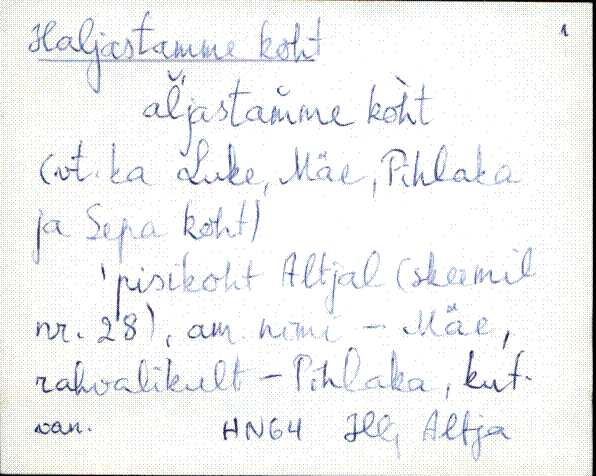 1
Haljastamme koht
al̆jastam̆me kòht
(vt. ka Luke, Mäe, Pihlaka
ja Sepa koht)
'pisikoht Altjal (skeemil
nr. 28), am. nimi - Mäe,
rahvalikult - Pihlaka, kut.
van. HN64 Hlj Altja